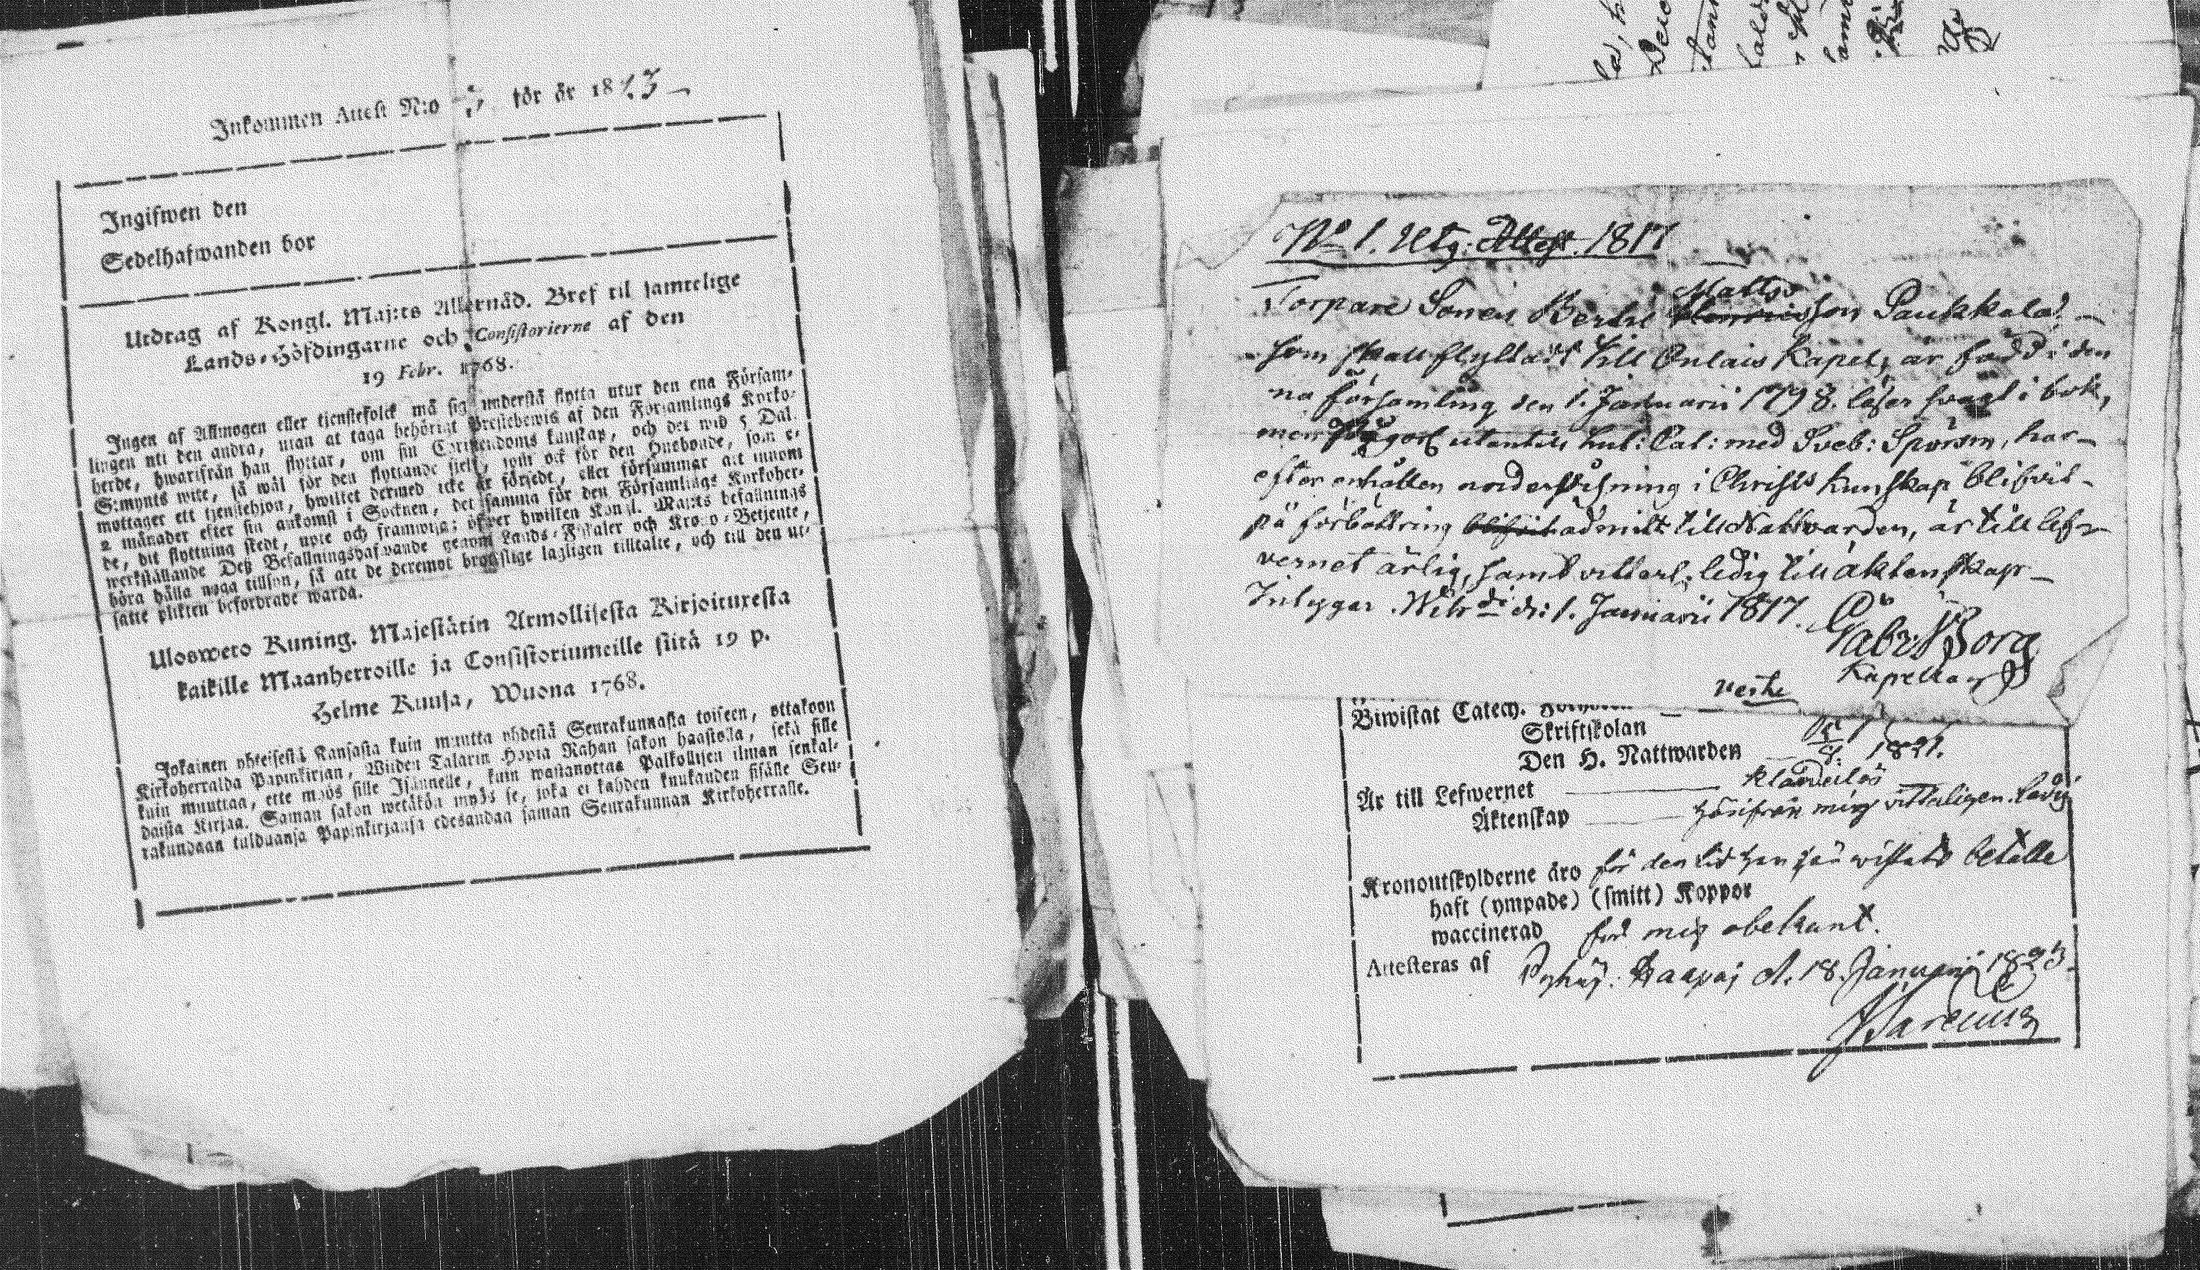 Inkommen Attest N:o 3 för år 1823
Ingifwen den
Sedelhafwanden bor
Utdrag af Kongl. Maj:ts Allernåd. Bref til samtelige
Lands-Höfdingarne och Consistorierne af den
19 Febr. 1768.
Ingen af Allmogen eller tjenstefolck må sig understå flytta utur den ena Försam-
lingen uti den andra, utan at taga behörigt Prestebewis af den Församlings Kyrko-
herde, hwarifrån han flyttar, om sin Christendoms kunskap, och det wid 5 Dal.
S:mynts wite, så wäl för den flyttande sielf, som ock för den Husbonde, som e-
mottager ett tjenstehjon, hwilket dermed icke är försedt, eller försummar att innom
2 månader efter sin ankomst i Socknen, det samma för den Församlings Kyrkoher-
de, dit flyttning skedt, upte och framwisa; öfwer hwilken Kongl. Maj:ts befallnings
werkställande Deß Befallningshafwande genom Lands-Fiskaler och Krono-Betjente,
böra hålla noga tillsyn, så att de deremot brottslige lagligen tilltalte, och till den ut-
satte plikten befordrade warda.
Uloswero Kuning. Majestätin Armollisesta Kirjoituxesta
kaikille Maanherroille ja Consistoriumeille siitä 19 p.
Helme Kuusa, Wuona 1768.
Jokainen yhteisestä Kansasta kuin muutta yhdestä Seurakunnasta toiseen, ottakoon
Kirkoherralda Papinkirjan, Wiiden Talarin Hopia Rahan sakon haastolla, sekä sille
kuin muuttaa, ette myös sille Isännelle, kuin wastanottaa Palkollisen ilman senkal-
daista Kirjaa. Saman sakon wetäkön myös se, joka ei kahden kuukauden sisälle Seu-
rakundaan tulduansa Papinkirjansa edesandaa saman Seurakunnan Kirkoherralle.
No 1. Utg: Attest. 1817
Matts
Torpare Sonen Henricsson Paukkala
som skall flytta till Oulais Kapel, är född i den
na församling den 1. Januarii 1798. läser svagt i bok,
utantill hul: Cat: med Sveb: Spörsm, har
efter enhållen undervisning i Christ: kunskap blifvit
på förbättring blifvit admitt: till Nattvarden, är till lef-
vernet ärlig, samt vitterl: ledig till äktenskap
Intygar. d: 1. Januarii 1817.
Gabr: Borg
Kapellan
Biwistat Catech. Förhören
Skriftskolan
Den H. Nattwarden 1821.
Är till Lefwernet klanderlös
Äktenskap härifrån mig vitterligen ledig
Kronoutskylderne äro för den tid han här wistats betalte
haft (ympade) (smitt) Koppor
waccinerad för mig obekant.
Attesteras af Pyhäj. Haapaj d. 18. Januarii 1823.